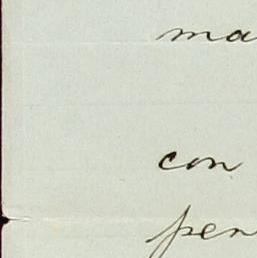 ma
con
pen